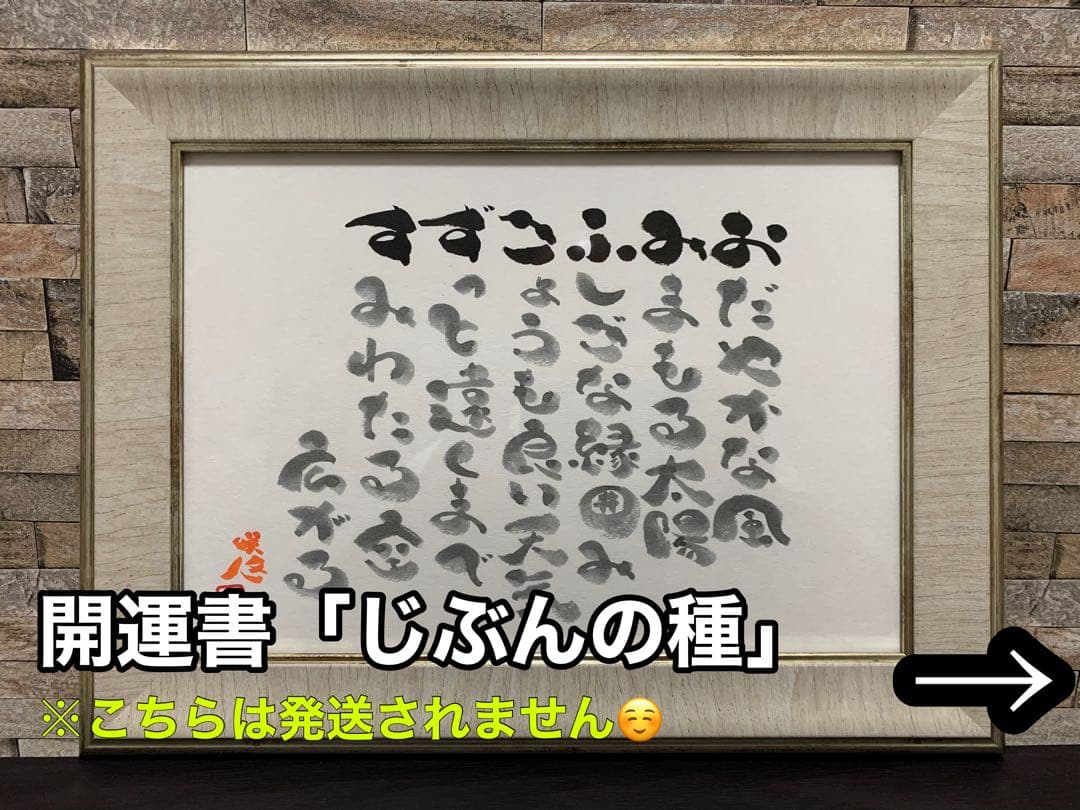 おだやかな風
みまもる太陽
ふしぎな縁囲み
きょうも良い天気
ずっと遠くまで
すみわたる空
広がる
開運書「じぶんの種」
※こちらは発送されません☺️